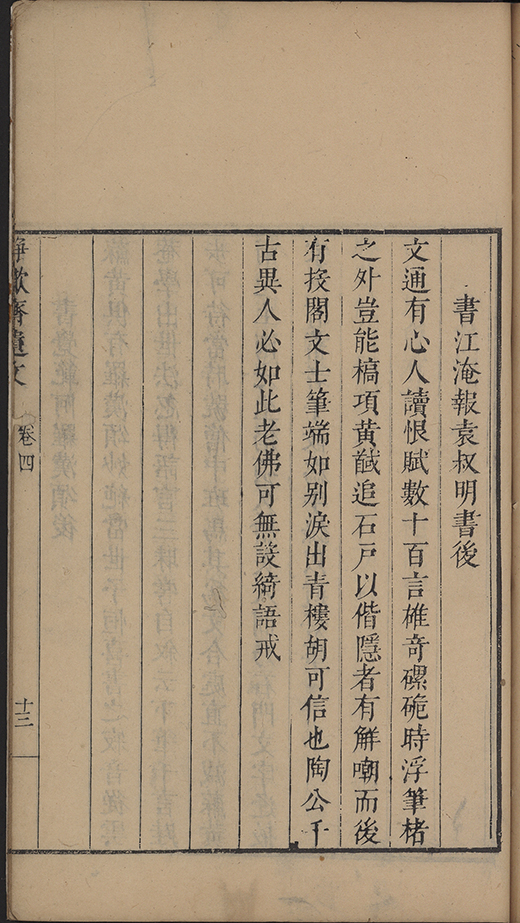 書江淹報袁叔明書後
文通有心人讀恨賦數十百言雄奇磥硊時浮筆楮
之外豈能槁項黃馘追石戸以偕隱者有解嘲而後
有投閣文士筆端如别淚出青樓胡可信也陶公千
古異人必如此老佛可無設綺語戒
齋遺文
卷四
十三